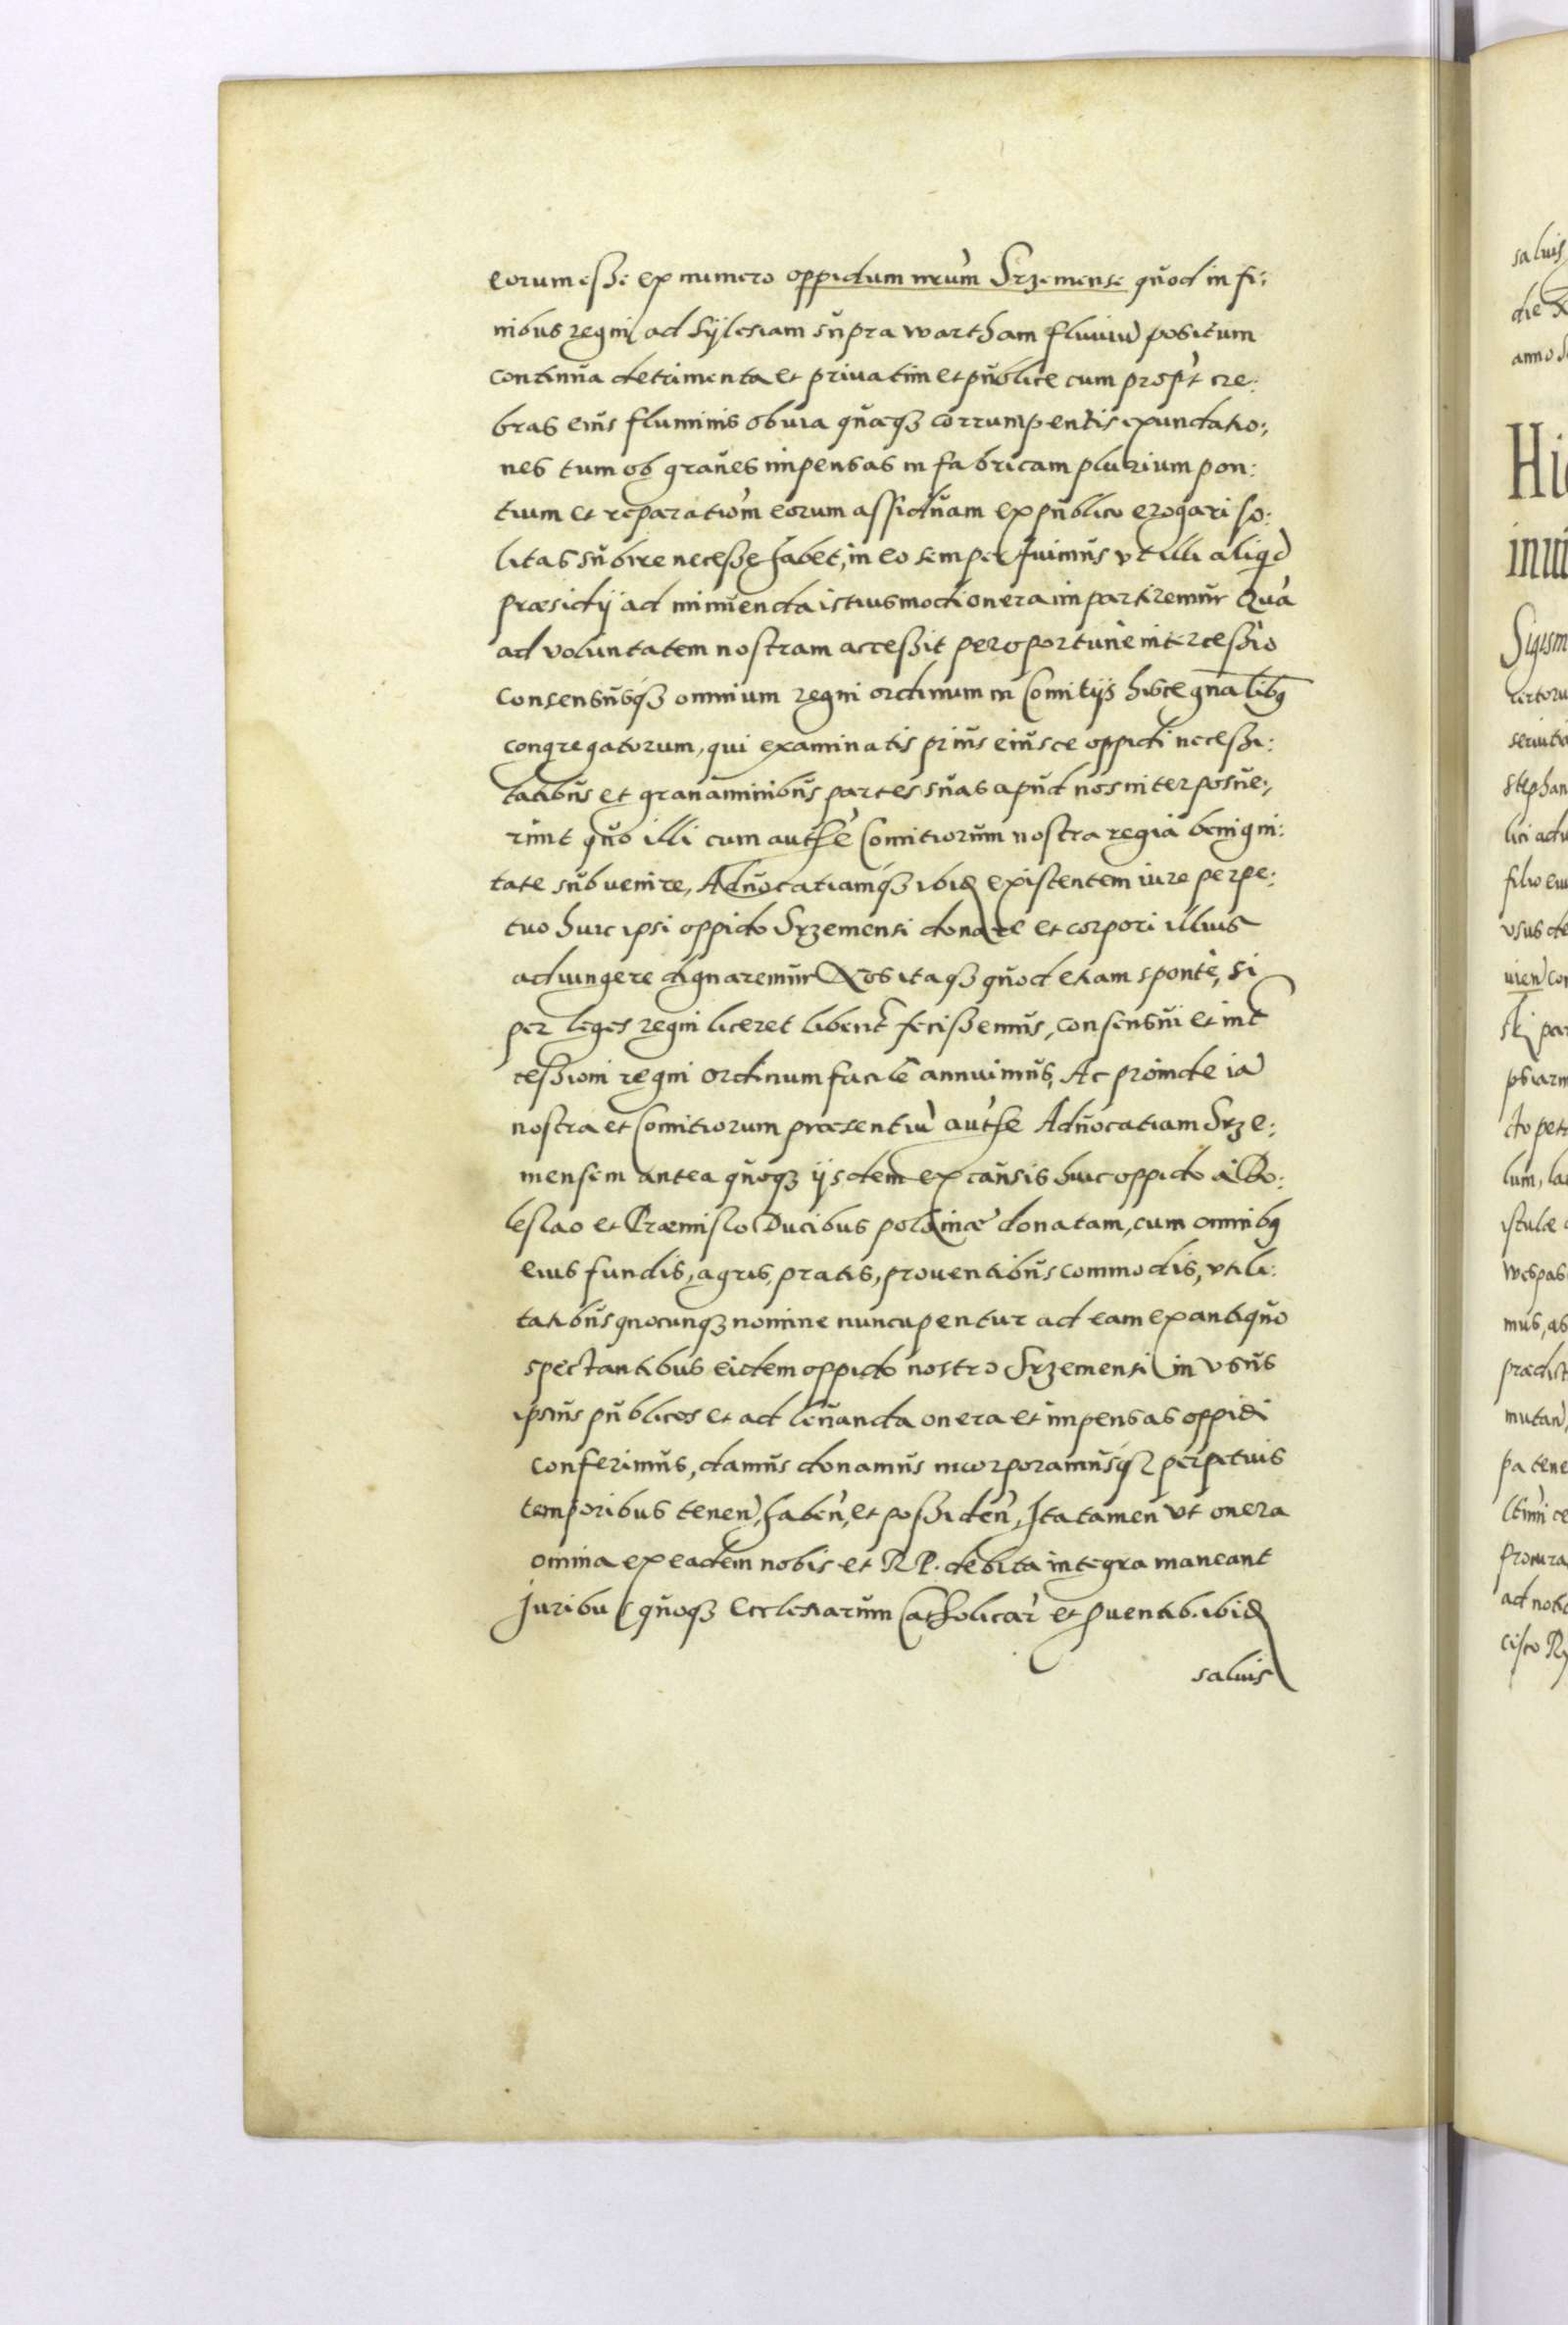 eorum esse ex numero oppidum nrũm Srzemense quod in fi:
nibus regni ad Sylesiam supra wartham fluuiũ positum
continua detrimenta et priuatim et publice cum propt̀ cre:
bras eius fluminis obuia quaeqꝫ corrumpentis exundatio:
nes tum ob graues impensas in fabricam plurium pon:
tium et reparatiom̀ eorum assiduam ex publico erogari so:
litas subire necesse habet, in eo semper fuimus vt illi aliqd̀
præsidij ad minuenda istiusmodi onera impartiremur Qua
ad voluntatem nostram accessit peroportune intercessio
consensusqꝫ omnium regni ordinum in Comitijs hisce gnalibꝫ
congregatorum, qui examinatis prius eiusce oppidi necessi:
tatibus et grauaminibus partes suas apud nos interposue:
runt quo illi cum autħe Comitiorum nostra regia benigni:
tate subuenire, Aduocatiamqꝫ ibid existentem iure perpe:
tuo huic ipsi oppido Srzemensi donare et corpori illius
adiungere dignaremur Nos itaqꝫ quod etiam sponte, si
per leges regni liceret libent̃ fecissemus, consensui et int̃
cessioni regni ordinum facile annuimus, Ac proinde iã
nostra et Comitiorum præsentiũ autħe Aduocatiam Srze:
mensem antea quoqꝫ ijsdem ex causis huic oppido à Bo:
leslao et Præmislo Ducibus poloniæ donatam, cum omnibꝫ
eius fundis, agris, pratis, prouentibus commodis, vtili:
tatibus quocunqꝫ nomine nuncupentur ad eam ex antiquo
spectantibus eidem oppido nostro Srzemensi in vsus
ipsius publicos et ad leuanda onera et impensas oppidi
conferimus, damus donamus incorporamusqꝫ perpetuis
temporibus tenen̄, haben̄, et possiden̄, Ita tamen vt onera
omnia ex eadem nobis et RP. debita integra maneant
Juribus quoqꝫ Ecclesiarum Catholicar̀ et ꝓuentib. ibid
saluis